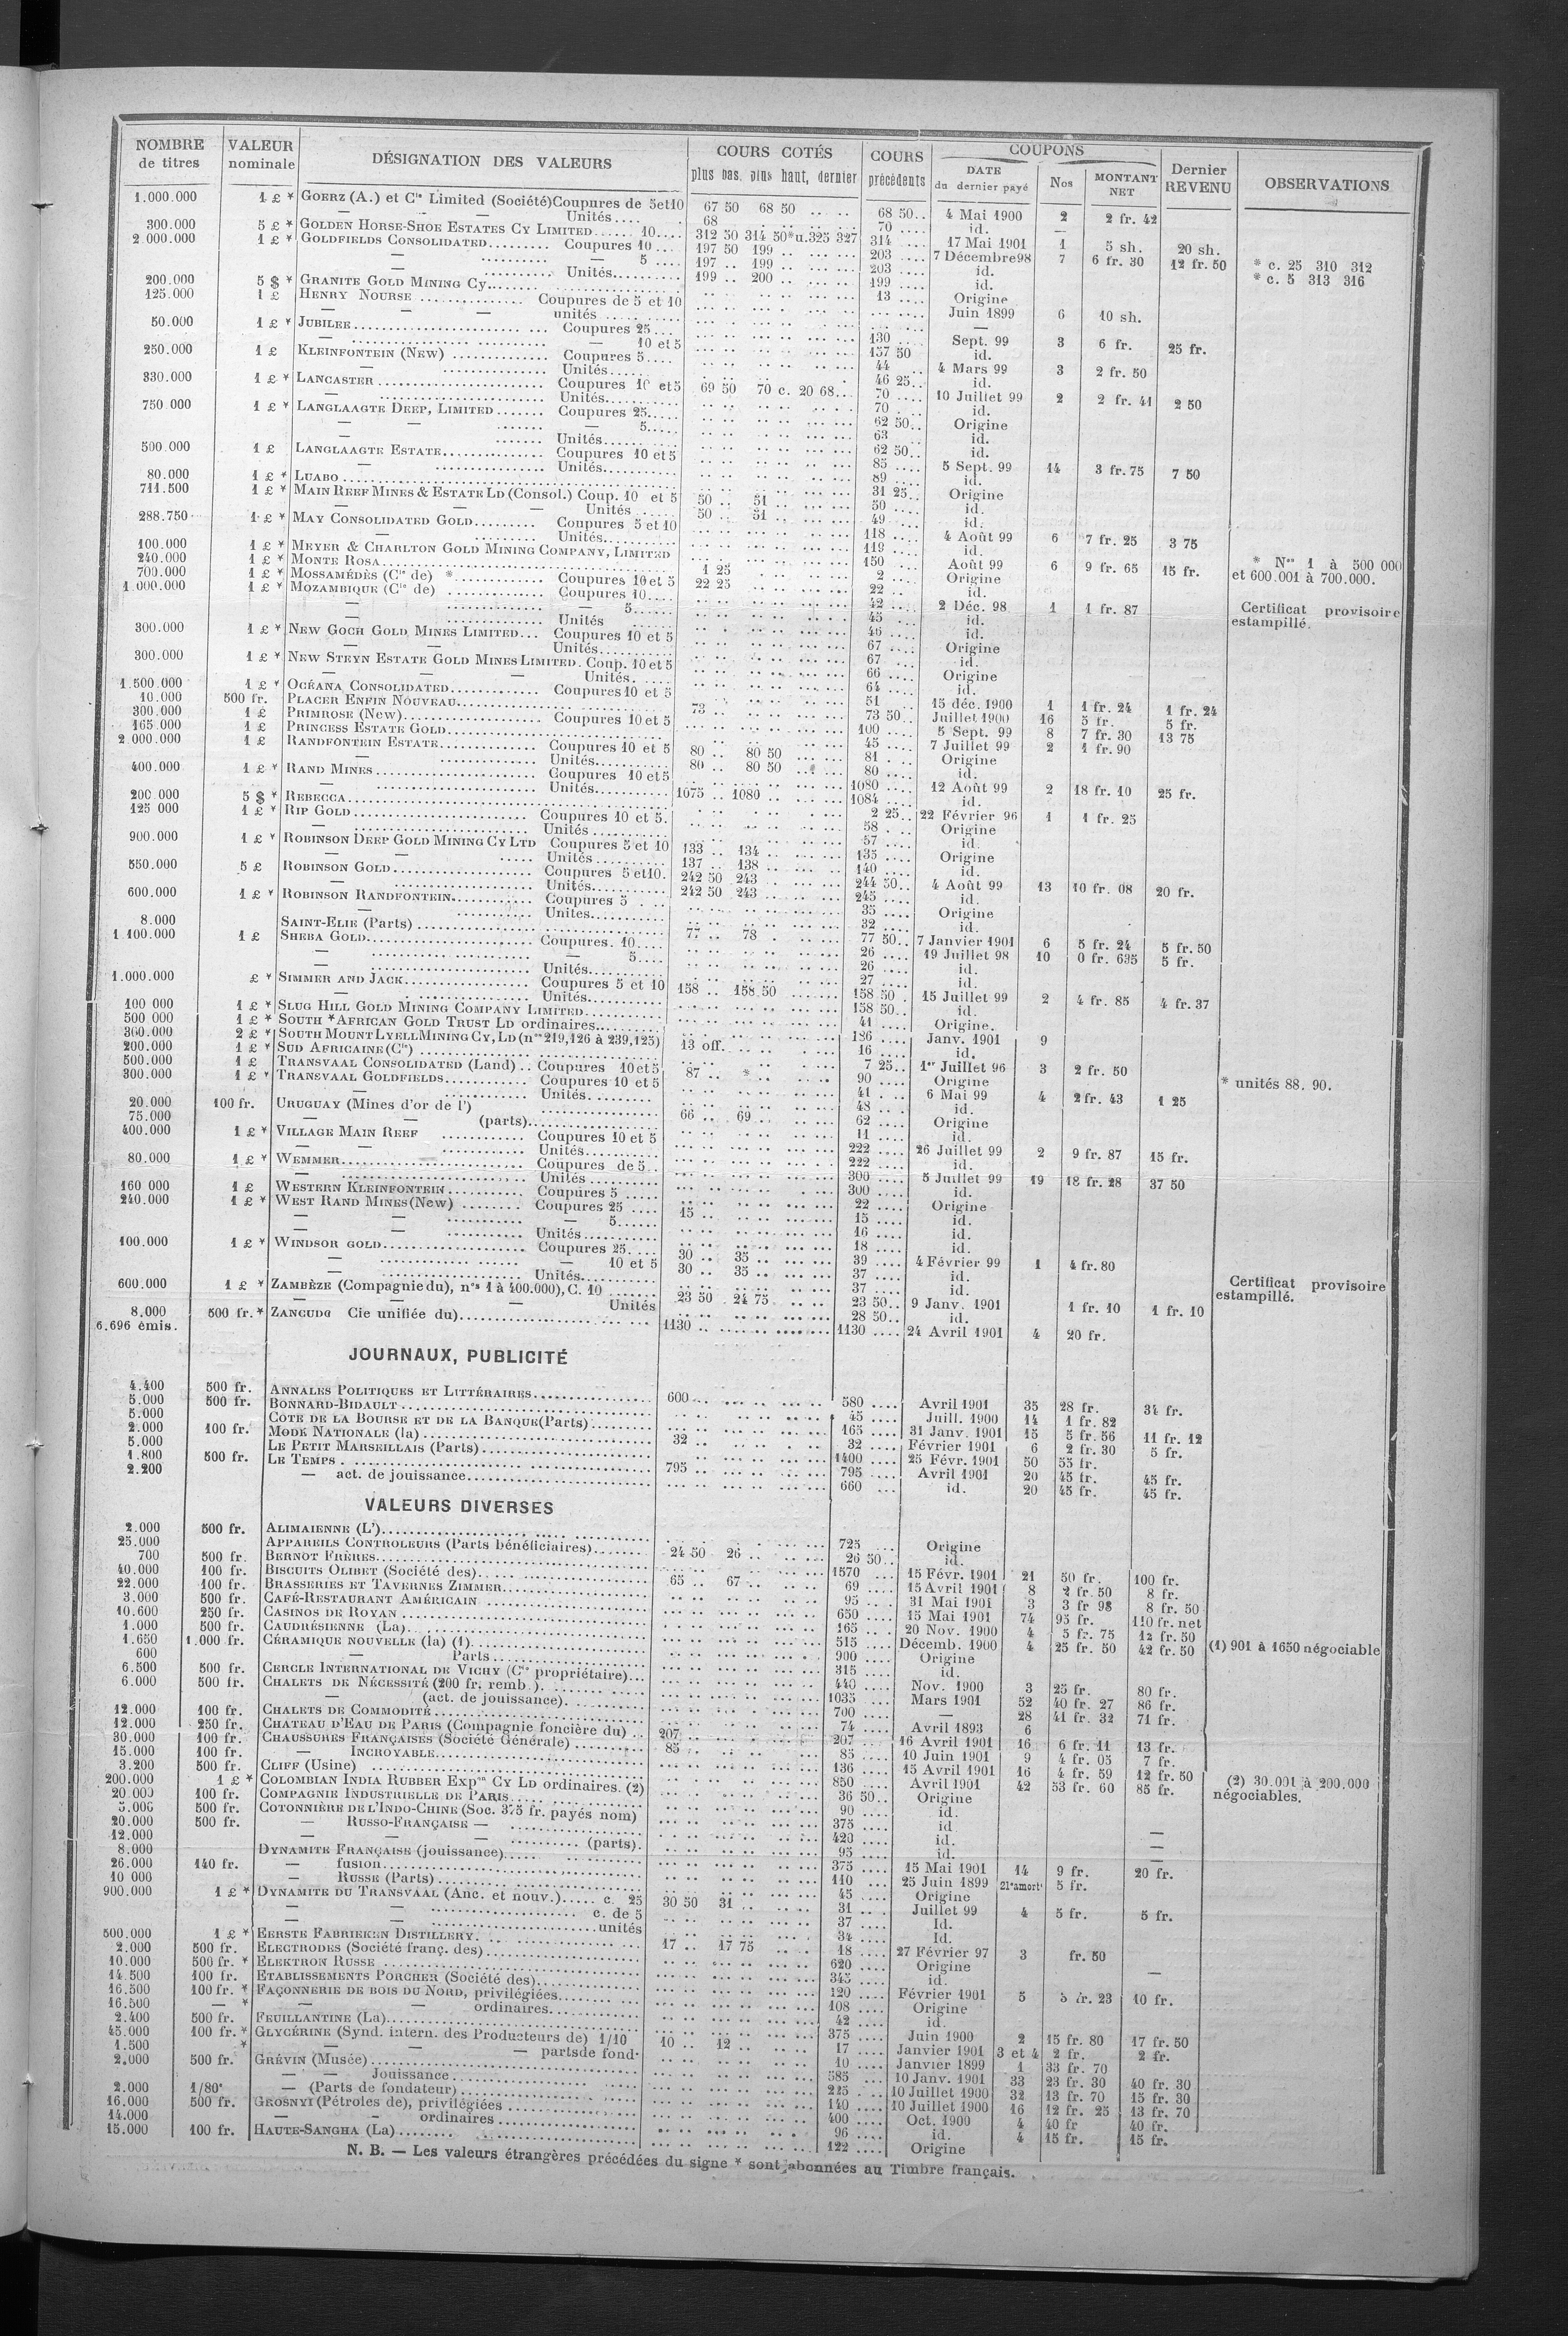 NOMBRE de titres | VALEUR nominale | DÉSIGNATION DES VALEURS | COURS COTÉS plus bas, plus haut, dernier | COURS précédents | COUPONS DATE du dernier payé | Nos | MONTANT NET | Dernier REVENU | OBSERVATIONS
1.000.000 1 £ * GOERZ (A.) et Cie Limited (Société) Coupures de 5 et 10 67 50 68 50 .. .. 68 50.. 4 Mai 1900 2 2 fr. 42
— — — Unités.... 68 70 .... id. —
300.000 5 £ * GOLDEN HORSE-SHOE ESTATES CY LIMITED...... 10.... 312 50 314 50*u.325 327 314 .... 17 Mai 1901 1 5 sh. 20 sh. * c. 25 310 312
2.000.000 1 £ * GOLDFIELDS CONSOLIDATED......... Coupures 10 ... 197 50 199 .. 203 .... 7 Décembre 98 7 6 fr. 30 12 fr. 50 * c. 5 313 316
— — 5 .... 197 .. 199 .. 203 .... id.
Unités.......... 199 .. 200 .. 199 .... id.
200.000 5 $ * GRANITE GOLD MINING Cy........ 13 .... Origine
125.000 1 £ HENRY NOURSE ............... Coupures de 5 et 10 Juin 1899 6 10 sh.
— — — unités —
50.000 1 £ * JUBILEE............ Coupures 25 ... 130 Sept. 99 3 6 fr. 25 fr.
— 10 et 5 137 50 id.
250.000 1 £ KLEINFONTEIN (New) .............. Coupures 5.... 44 .. 4 Mars 99 3 2 fr. 50
— Unités...... 46 25.. id.
330.000 1 £ * LANCASTER ........................ Coupures 10 et 5 69 50 70 c. 20 68... 70 .... 10 Juillet 99 2 2 fr. 41 2 50
— Unités.......... 70 .... id.
750 000 1 £ * LANGLAAGTE DEEP, LIMITED ....... Coupures 25..... 62 50.. Origine
— — — 5..... 63 .. id.
Unités........... 62 50.. id.
500.000 1 £ LANGLAAGTE ESTATE.............. Coupures 10 et 5 85 .... 5 Sept. 99 14 3 fr. 75 7 50
— Unités........... 89 .... id.
80.000 1 £ * LUABO ............ 31 25.. Origine
711.500 1 £ * MAIN REEF MINES & ESTATE LD (Consol.) Coup. 10 et 5 50 .. 51 .. 50 .... id.
— — — Unités ...... 50 .. 51 .. 49 .... id.
288.750 1 £ * MAY CONSOLIDATED GOLD......... Coupures 5 et 10 118 .... 4 Août 99 6 7 fr. 25 3 75
— Unités.......... 119 .... id.
100.000 1 £ * MEYER & CHARLTON GOLD MINING COMPANY, LIMITED 150 ... Août 99 6 9 fr. 65 15 fr.
240.000 1 £ * MONTE ROSA............ 1 25 2 .... Origine
700.000 1 £ * MOSSAMÉDÈS (Cie de) *............ Coupures 10 et 5 22 25 22 .. id. * Nos 1 à 500 000 et 600.001 à 700.000.
1.000.000 1 £ * MOZAMBIQUE (Cie de) .............. Coupures 10.... 42 .... 2 Déc. 98 1 1 fr. 87 Certificat provisoire estampillé.
— — 5...... 45 ... id.
— Unités ...... 46 .... id.
300.000 1 £ * NEW GOCH GOLD MINES LIMITED... Coupures 10 et 5 67 .... Origine
— — Unités........... 67 .... id.
300.000 1 £ * NEW STEYN ESTATE GOLD MINES LIMITED. Coup. 10 et 5 66 .... Origine
— — — Unités. ..... 64 .... id.
1.500.000 1 £ * OCÉANA CONSOLIDATED............. Coupures 10 et 5 51 .. 15 déc. 1900 1 1 fr. 24 1 fr. 24
10.000 500 fr. PLACER ENFIN NOUVEAU............ 73 .. 73 50.. Juillet 1900 16 5 fr. 5 fr.
300.000 1 £ PRIMROSE (New).................... Coupures 10 et 5 100 .... 5 Sept. 99 8 7 fr. 30 13 75
165.000 1 £ PRINCESS ESTATE GOLD............ 45 .... 7 Juillet 99 2 1 fr. 90
2.000.000 1 £ RANDFONTEIN ESTATE.............. Coupures 10 et 5 80 .. 80 50 81 .... Origine
— Unités.......... 80 .. 80 50 80 .... id.
400.000 1 £ * RAND MINES....................... Coupures 10 et 5 1080 .... 12 Août 99 2 18 fr. 10 25 fr.
— Unités.......... 1075 .. 1080 .. 1084 .... id.
200.000 5 $ * REBECCA............ 2 25.. 22 Février 96 1 1 fr. 25
125 000 1 £ * RIP GOLD......................... Coupures 10 et 5. 58 .... Origine
— Unités .......... 57 .... id.
900.000 1 £ * ROBINSON DEEP GOLD MINING CY LTD Coupures 5 et 10 133 .. 134 .. 135 .... Origine
— — Unités.......... 137 .. 138 .. 140 .... id.
550.000 5 £ ROBINSON GOLD.................... Coupures 5 et 10. 242 50 243 .. 244 50.. 4 Août 99 13 10 fr. 08 20 fr.
— Unités.......... 242 50 243 .. 245 .... id.
600.000 1 £ * ROBINSON RANDFONTEIN............ Coupures 5 35 .... Origine
— Unités........... 32 .... id.
8.000 SAINT-ELIE (Parts) ............ 77 .. 78 . 77 50.. 7 Janvier 1901 6 5 fr. 24 5 fr. 50
1.100.000 1 £ SHEBA GOLD........................ Coupures. 10.... 26 .... 19 Juillet 98 10 0 fr. 635 5 fr.
— — 5.... 26 .... id.
— Unités........... 27 .... id.
1.000.000 £ * SIMMER AND JACK.................. Coupures 5 et 10 158 .. 158.50 158 50 . 15 Juillet 99 2 4 fr. 85 4 fr. 37
— — Unités........... 158 50.. id.
100 000 1 £ * SLUG HILL GOLD MINING COMPANY LIMITED............ 41 .... Origine.
500 000 1 £ * SOUTH *AFRICAN GOLD TRUST LD ordinaires............ 186 .... Janv. 1901 9
360.000 2 £ * SOUTH MOUNT LYELL MINING CY, LD (nos 219,126 à 239,125) 13 off. 16 .... id.
200.000 1 £ * SUD AFRICAINE (Cie) ............ 7 25.. 1er Juillet 96 3 2 fr. 50
500.000 1 £ TRANSVAAL CONSOLIDATED (Land) .. Coupures 10 et 5 87 .. * .. 90 .... Origine * unités 88. 90.
300.000 1 £ * TRANSVAAL GOLDFIELDS............ Coupures 10 et 5 41 .. 6 Mai 99 4 2 fr. 43 1 25
— Unités.......... 48 .... id.
20.000 100 fr. URUGUAY (Mines d'or de l') ............ 66 .. 69 .. 62 .... Origine
75.000 — — (parts)............ 11 .... id.
400.000 1 £ * VILLAGE MAIN REEF ............ Coupures 10 et 5 222 .... 26 Juillet 99 2 9 fr. 87 15 fr.
— — Unités........... 222 .... id.
80.000 1 £ * WEMMER........................... Coupures de 5.. 300 .... 5 Juillet 99 19 18 fr. 28 37 50
— Unités .......... 300 .... id.
160 000 1 £ WESTERN KLEINFONTEIN............ Coupures 5 ..... 22 .... Origine
240.000 1 £ * WEST RAND MINES (New) ......... Coupures 25 .... 15 .. 15 .... id.
— — — 5...... 16 .... id.
— — Unités........... 18 .... id.
100.000 1 £ * WINDSOR GOLD..................... Coupures 25..... 30 .. 35 .. 39 .... 4 Février 99 1 4 fr. 80
— — 10 et 5 30 .. 35 .. 37 .... id.
— Unités........... 37 .... id.
600.000 1 £ * ZAMBÈZE (Compagnie du), nos 1 à 400.000), C. 10 ....... 23 50 24 75 23 50.. 9 Janv. 1901 1 fr. 10 1 fr. 10 Certificat provisoire estampillé.
— — — Unités 28 50.. id.
8.000 500 fr.* ZANCUDO Cie unifiée du)............ 1130 .. 1130 .... 24 Avril 1901 4 20 fr.
6.696 émis.
JOURNAUX, PUBLICITÉ
4.400 500 fr. ANNALES POLITIQUES ET LITTÉRAIRES............ 600.. 580 .... Avril 1901 35 28 fr. 34 fr.
5.000 500 fr. BONNARD-BIDAULT ............ 45 .... Juill. 1900 14 1 fr. 82
5.000 COTE DE LA BOURSE ET DE LA BANQUE (Parts)............ 165 .... 31 Janv. 1901 15 5 fr. 56 11 fr. 12
2.000 100 fr. MODE NATIONALE (la) ............ 32 .. 32 .... Février 1901 6 2 fr. 30 5 fr.
5.000 LE PETIT MARSEILLAIS (Parts)............ 1400 .... 25 Févr. 1901 50 55 fr.
1.800 500 fr. LE TEMPS ............ 795 .. 795 .... Avril 1901 20 45 fr. 45 fr.
2.200 — act. de jouissance............ 660 ... id. 20 45 fr. 45 fr.
VALEURS DIVERSES
2.000 500 fr. ALIMAIENNE (L')............ 725 .... Origine
25.000 APPAREILS CONTROLEURS (Parts bénéficiaires)........ 24 50 26 .. 26 50.. id.
700 500 fr. BERNOT FRÈRES............ 1570 .... 15 Févr. 1901 21 50 fr. 100 fr.
40.000 100 fr. BISCUITS OLIBET (Société des)............ 65 .. 67 .. 69 .... 15 Avril 1901 8 2 fr. 50 8 fr.
22.000 100 fr. BRASSERIES ET TAVERNES ZIMMER............ 95 .... 31 Mai 1901 3 3 fr 98 8 fr. 50
3.000 500 fr. CAFÉ-RESTAURANT AMÉRICAIN ............ 650 .... 15 Mai 1901 74 95 fr. 110 fr. net
10.600 250 fr. CASINOS DE ROYAN ............ 165 .. 20 Nov. 1900 4 5 fr. 75 12 fr. 50
1.000 500 fr. CAUDRÉSIENNE (La)............ 515 .... Décemb. 1900 4 25 fr. 50 42 fr. 50
1.650 1.000 fr. CÉRAMIQUE NOUVELLE (la) (1)............ 900 .... Origine (1) 901 à 1650 négociable
600 — Parts............ 315 .... id.
6.500 500 fr. CERCLE INTERNATIONAL DE VICHY (Cie propriétaire)... 440 .... Nov. 1900 3 25 fr. 80 fr.
6.000 500 fr. CHALETS DE NÉCESSITÉ (200 fr. remb.)............ 1035 ... Mars 1901 52 40 fr. 27 86 fr.
— (act. de jouissance)............ 700 .... — 28 41 fr. 32 71 fr.
12.000 100 fr. CHALETS DE COMMODITÉ............ 74 .... Avril 1893 6
12.000 250 fr. CHATEAU D'EAU DE PARIS (Compagnie foncière du) .. 207 .. 207 .... 16 Avril 1901 16 6 fr. 11 13 fr.
30.000 100 fr. CHAUSSURES FRANÇAISES (Société Générale) .......... 85 .. 85 .... 10 Juin 1901 9 4 fr. 05 7 fr.
15.000 100 fr. — INCROYABLE............ 136 .... 15 Avril 1901 16 4 fr. 59 12 fr. 50
3.200 500 fr. CLIFF (Usine) ............ 850 .... Avril 1901 42 53 fr. 60 85 fr.
200.000 1 £ * COLOMBIAN INDIA RUBBER Expon CY LD ordinaires. (2) 36 50.. Origine (2) 30.001 à 200.000 négociables.
20.000 100 fr. COMPAGNIE INDUSTRIELLE DE PARIS............ 90 .... id.
500 fr. COTONNIÈRE DE L'INDO-CHINE (Soc. 375 fr. payés nom) 375 .... id
20.000 500 fr. — RUSSO-FRANÇAISE — ............ 420 .... id. —
12.000 — — — (parts). 95 .... id. —
8.000 DYNAMITE FRANÇAISE (jouissance)............ 375 .... 15 Mai 1901 14 9 fr. 20 fr.
26.000 140 fr. — fusion............ 110 ... 25 Juin 1899 21e amort 5 fr.
10 000 — RUSSE (Parts)............ 45 .... Origine
900.000 1 £ * DYNAMITE DU TRANSVAAL (Anc. et nouv.)..... c. 25 30 50 31 .. 31 .... Juillet 99 4 5 fr. 5 fr.
— — c. de 5 37 .... Id.
— — unités 34 .... Id.
500.000 1 £ * EERSTE FABRIEKEN DISTILLERY............ 17 .. 17 75 18 .... 27 Février 97 3 fr. 50
2.000 500 fr. ELECTRODES (Société franç. des)............ 620 .... Origine
10.000 500 fr. * ELEKTRON RUSSE ............ 345 .... id. —
14.500 100 fr. ETABLISSEMENTS PORCHER (Société des)............ 120 .... Février 1901 5 5 fr. 23 10 fr.
16.500 100 fr. * FAÇONNERIE DE BOIS DU NORD, privilégiées............ 108 .... Origine
16.500 — * — — ordinaires............ 42 .... id.
2.400 500 fr. FEUILLANTINE (La)............ 375 .... Juin 1900 2 15 fr. 80 17 fr. 50
45.000 100 fr. * GLYCÉRINE (Synd. intern. des Producteurs de) 1/10 10 .. 12 .. 17 .... Janvier 1901 3 et 4 2 fr. 2 fr.
1.500 * — — — parts de fond. 10 .... Janvier 1899 1 33 fr. 70
2.000 500 fr. GRÉVIN (Musée)............ 585 .... 10 Janv. 1901 33 23 fr. 30 40 fr. 30
— — Jouissance............ 225 .... 10 Juillet 1900 32 13 fr. 70 15 fr. 30
2.000 1/80e — (Parts de fondateur)............ 140 .... 10 Juillet 1900 16 12 fr. 25 13 fr. 70
16.000 500 fr. GROSNYI (Pétroles de), privilégiées ............ 400 .... Oct. 1900 4 40 fr 40 fr.
14.000 — — ordinaires............ 96 .... id. 4 15 fr. 15 fr.
15.000 100 fr. HAUTE-SANGHA (La)............ 122 .... Origine
N. B. — Les valeurs étrangères précédées du signe * sont abonnées au Timbre français.